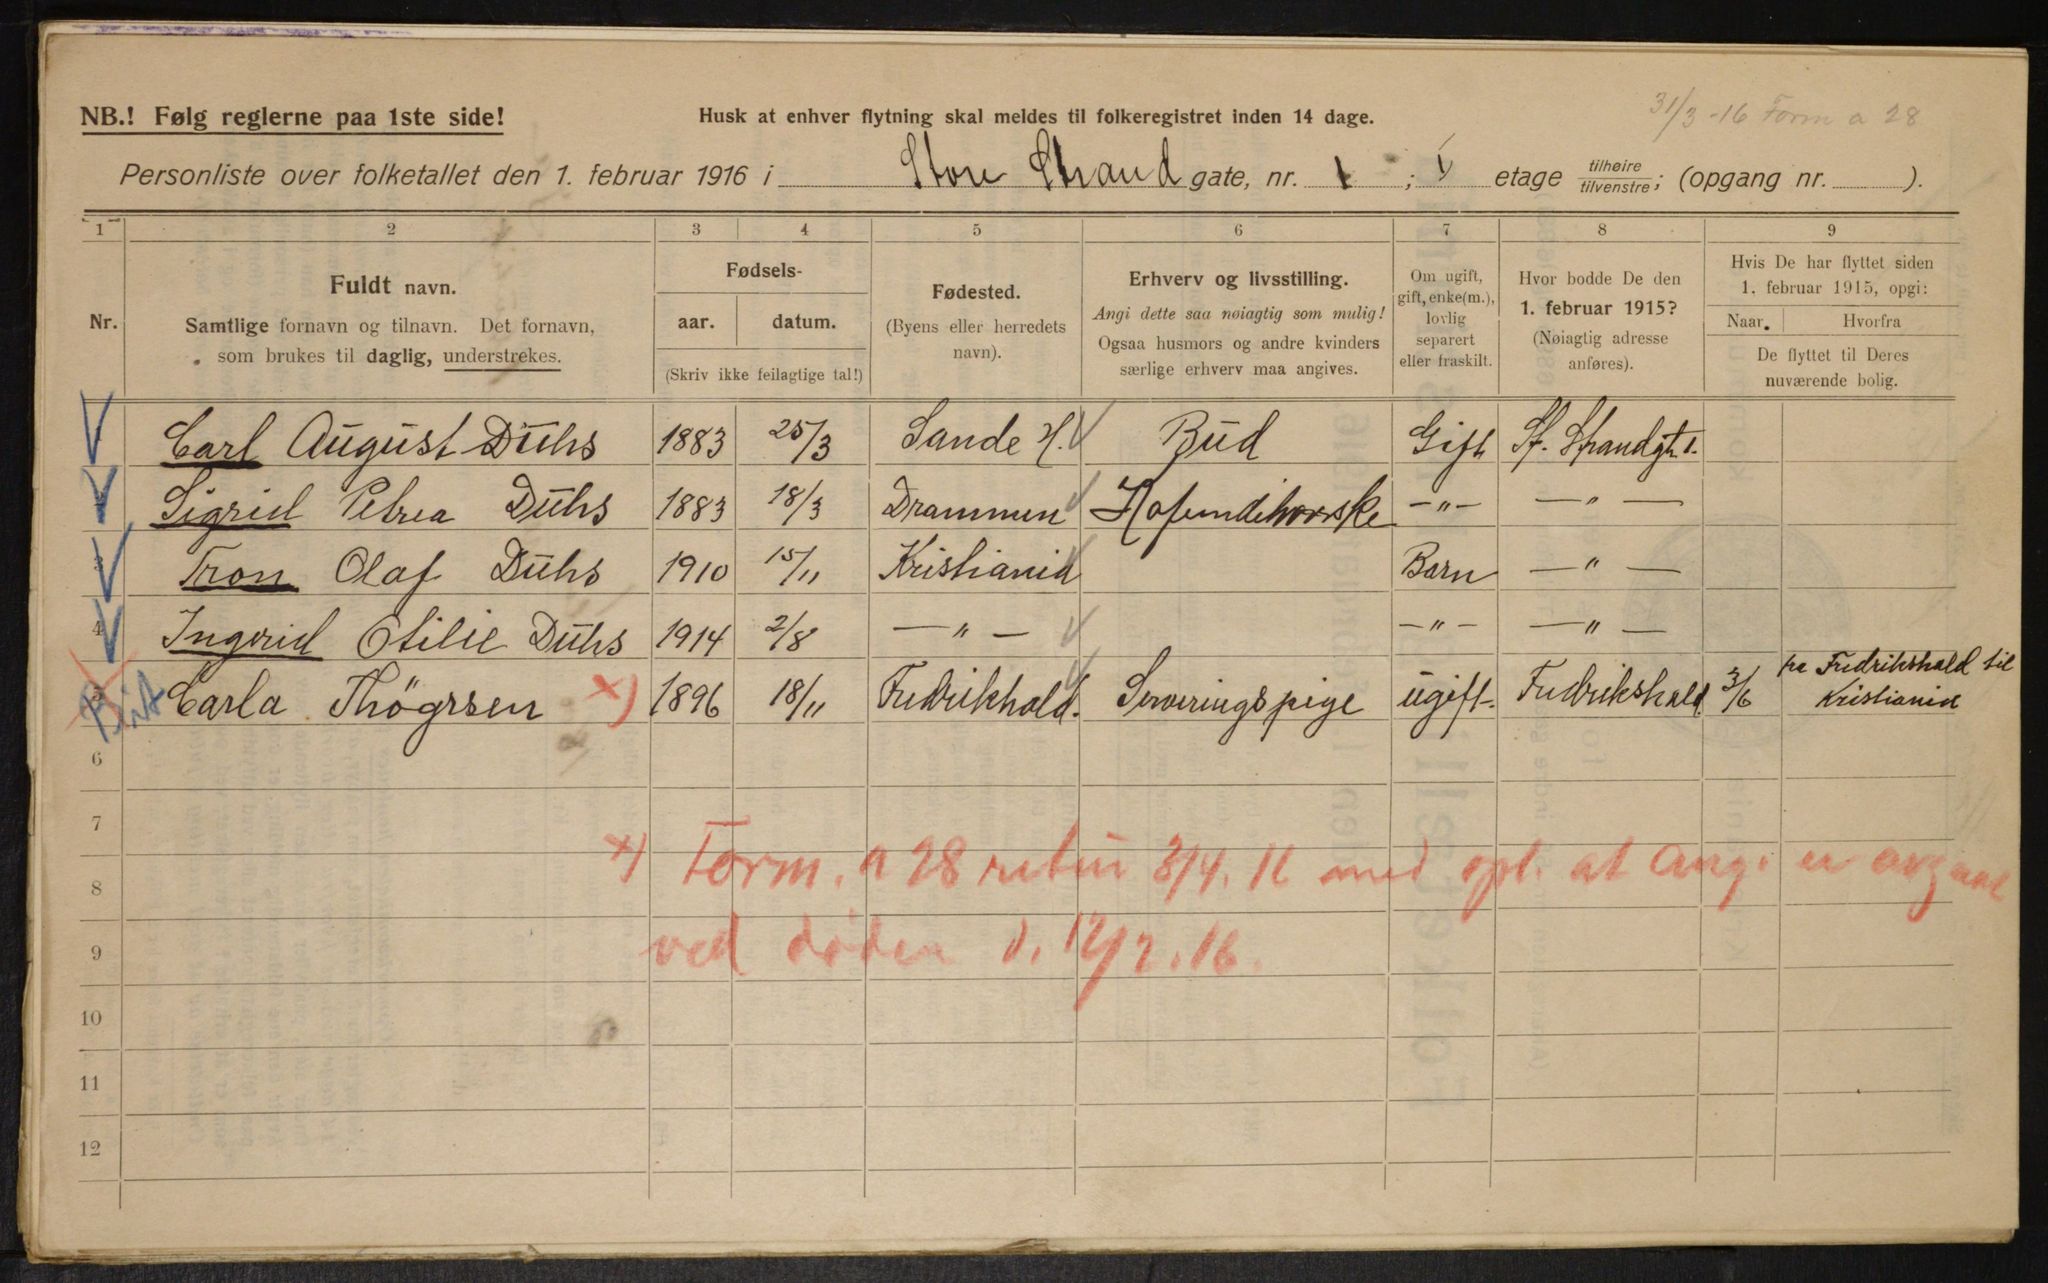 31/3 -16 Form a 28
NB.! Følg reglerne paa 1ste side! Husk at enhver flytning skal meldes til folkeregistret inden 14 dage.
Personliste over folketallet den 1. februar 1916 i Store Strand gate, nr. 1 ; I etage tilhøire/tilvenstre; (opgang nr. ).
1 2 3 4 5 6 7 8 9
Nr.
Fuldt navn.
Samtlige fornavn og tilnavn. Det fornavn,
som brukes til daglig, understrekes.
Fødsels-
aar. datum.
(Skriv ikke feilagtige tal!)
Fødested.
(Byens eller herredets
navn).
Erhverv og livsstilling.
Angi dette saa nøiagtig som mulig!
Ogsaa husmors og andre kvinders
særlige erhverv maa angives.
Om ugift,
gift, enke(m.),
lovlig
separert
eller fraskilt.
Hvor bodde De den
1. februar 1915?
(Nøiagtig adresse
anføres).
Hvis De har flyttet siden
1. februar 1915, opgi:
Naar. Hvorfra
De flyttet til Deres
nuværende bolig.
Carl August Dühs 1883 25/3 Sande H. Bud Gift St. Strandgt. 1.
Sigrid Petrea Dühs 1883 18/3 Drammen -"- -"-
3 Tron Olaf Dühs 1910 15/11 Kristiania Barn -"-
4 Ingrid Otilie Dühs 1914 2/8 -"- -"- -"-
5 Carla Thögrsen x) 1896 18/11 Fredrikhald. Serveringspige ugift. Fredrikshald 3/6 fra Fredrikshald til
Kristiania
6
7
x) Form. a 28 retur 3/4. 16 med opl. at ang. er avgaat
8
ved døden d. 12/2. 16.
9
10
11
12